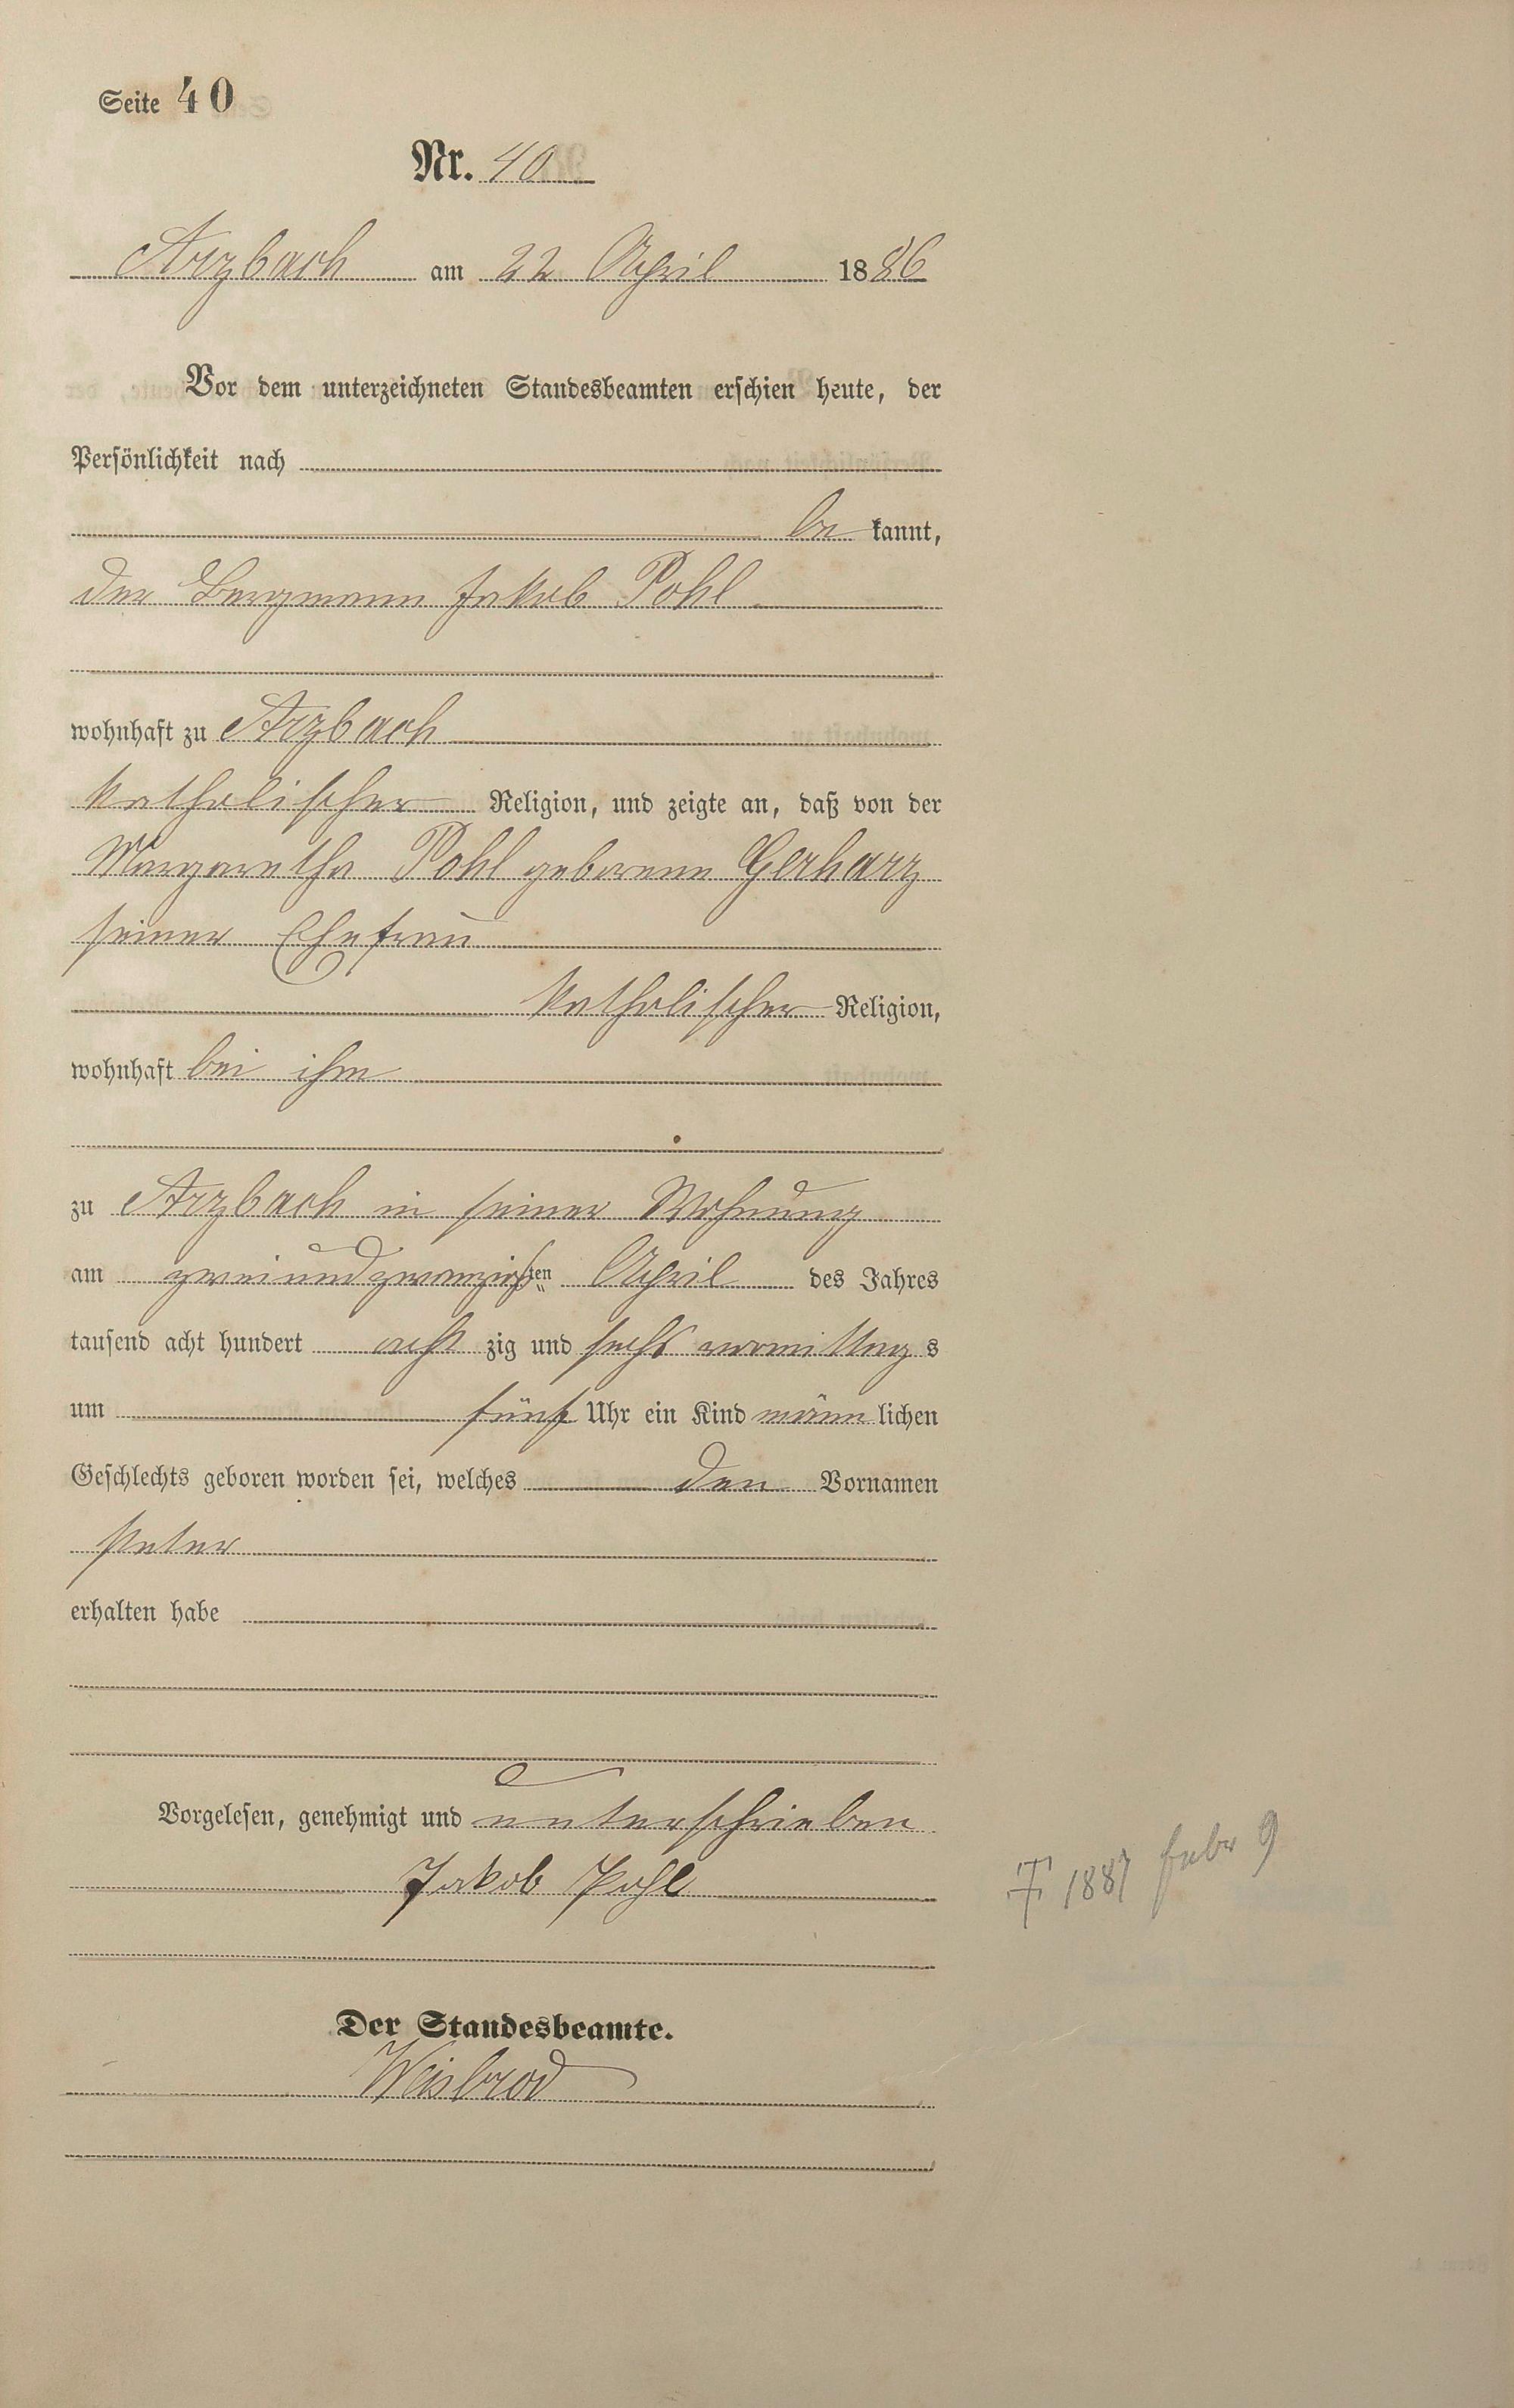 Seite 40
Nr. 40
Arzbach am 22 April 1886
Vor dem unterzeichneten Standesbeamten erschien heute, der
Persönlichkeit nach
be kannt,
der Bergmann Jakob Pohl
wohnhaft zu Arzbach
katholischer Religion, und zeigte an, daß von der
Margaretha Pohl geborene Gerharz
seiner Ehefrau
katholischer Religion,
wohnhaft bei ihm
zu Arzbach in seiner Wohnung
am zweiundzwanzigsten April des Jahres
tausend acht hundert acht zig und sechs vormittag s
um fünf Uhr ein Kind männ lichen
Geschlechts geboren worden sei, welches den Vornamen
Peter
erhalten habe
Vorgelesen, genehmigt und unterschrieben
Jakob Pohl
† 1887 Febr 9
Der Standesbeamte.
Weisbrod